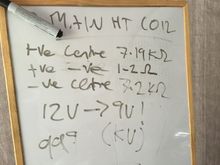 MAIN HT COIL
+ve centre 7.19KΩ
+ve -ve 1-2Ω
-ve centre 7.2KΩ
12V → 9V!
(KV)